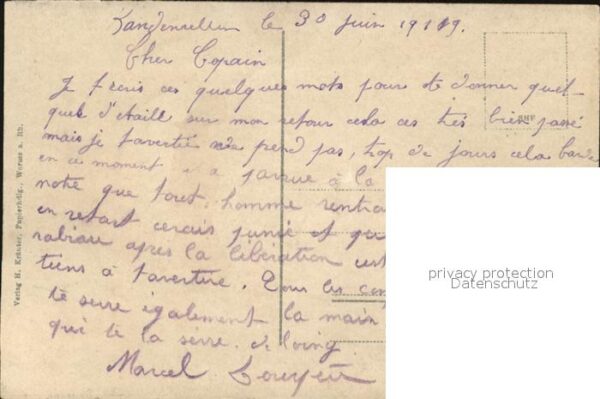 le 30 juin 1919.
Cher Copain
Je t'ecris ces quelques mots pour te donner quel-
ques d'etaille sur mon retour cela ces très bien passé
mais je t'avertie ne prend pas trop de jours cela barde
en ce moment il a parrue à la
note que tout homme rentra
en retart cerais punie et
rabiau après la libération
tiens à t'avertire. Tous les
te serre également la main
qui te la serre de loing.
Marcel
Verlag H. Kräuter, Papierhdlg., Worms a. Rh.
privacy protection
Datenschutz